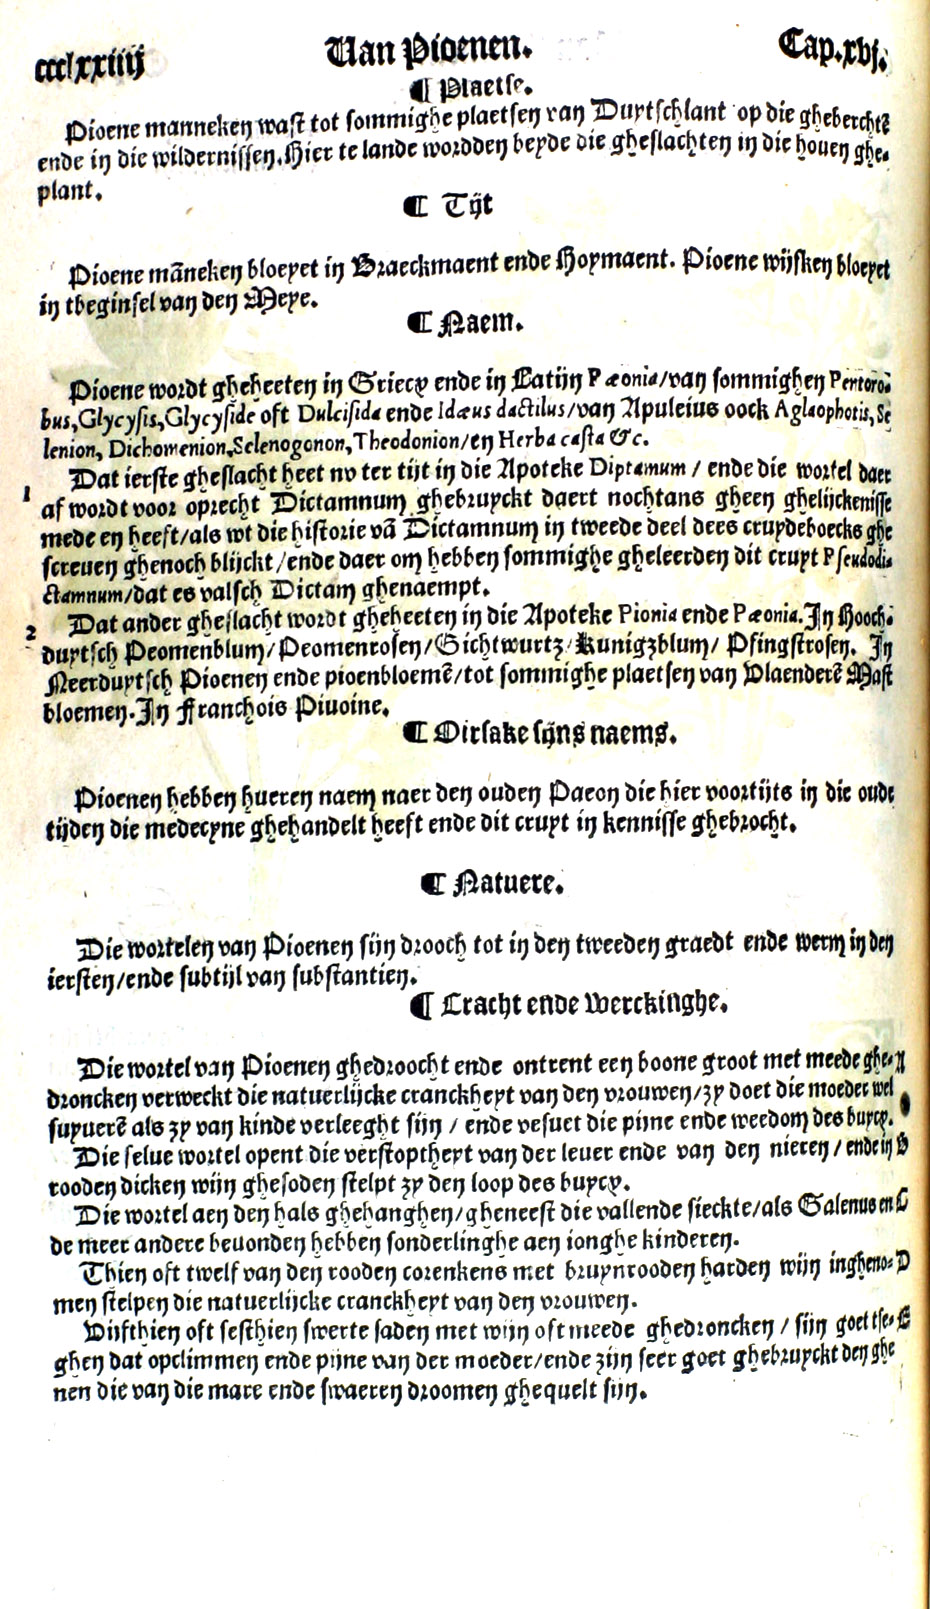 ccclxxiiij Van Pioenen. Cap.xvj.
¶ Plaetse.
Pioene manneken wast tot sommighe plaetsen van Duytschlant op die gheberchtẽ
ende in die wildernissen. Hier te lande wordden beyde die gheslachten in die houen ghe-
plant.
¶ Tijt
Pioene mãneken bloeyet in Braeckmaent ende Hoymaent. Pioene wijfken bloeyet
in tbeginsel van den Meye.
¶ Naem.
Pioene wordt gheheeten in Griecx ende in Latijn Pæonia/van sommighen Pentoro-
bus,Glycysis,Glycyside oft Dulcisida ende Idæus dactilus/van Apuleius oock Aglaophotis, Se
lenion, Dichomenion,Selenogonon,Theodonion/en Herba casta &c.
1 Dat ierste gheslacht heet nv ter tijt in die Apoteke Diptamum / ende die wortel daer
af wordt voor oprecht Dictamnum ghebruyckt daert nochtans gheen ghelijckenisse
mede en heeft/als wt die historie vã Dictamnum in tweede deel dees cruydeboecks ghe
screuen ghenoch blijckt/ende daer om hebben sommighe gheleerden dit cruyt Pseudodi-
ctamnum/dat es valsch Dictam ghenaempt.
2 Dat ander gheslacht wordt gheheeten in die Apoteke Pionia ende Pæonia. In Hooch-
duytsch Peomenblum/Peomenrosen/Gichtwurtz/Kunigzblum/ Pfingstrosen. In
Neerduytsch Pioenen ende pioenbloemẽ/tot sommighe plaetsen van Vlaenderẽ Mast
bloemen. In Franchois Piuoine.
¶ Oirsake sijns naems.
Pioenen hebben hueren naem naer den ouden Paeon die hier voortijts in die oude
tijden die medecyne ghehandelt heeft ende dit cruyt in kennisse ghebrocht.
¶ Natuere.
Die wortelen van Pioenen sijn drooch tot in den tweeden graedt ende werm in den
iersten/ende subtijl van substantien.
¶ Cracht ende Werckinghe.
Die wortel van Pioenen ghedroocht ende ontrent een boone groot met meede ghe- A
droncken verweckt die natuerlijcke cranckheyt van den vrouwen/zy doet die moeder wel
suyuerẽ als zy van kinde verleeght sijn / ende vesuet die pijne ende weedom des buycx.
Die selue wortel opent die verstoptheyt van der leuer ende van den nieren / ende in B
rooden dicken wijn ghesoden stelpt zy den loop des buycx.
Die wortel aen den hals ghehanghen/gheneest die vallende sieckte/als Galenus en C
de meer andere beuonden hebben sonderlinghe aen ionghe kinderen.
Thien oft twelf van den rooden corenkens met bruynrooden harden wijn ingheno- D
men stelpen die natuerlijcke cranckheyt van den vrouwen.
Vijfthien oft sesthien swerte saden met wijn oft meede ghedroncken / sijn goet tse- E
ghen dat opclimmen ende pijne van der moeder/ende zijn seer goet ghebruyckt den ghe
nen die van die mare ende swaeren droomen ghequelt sijn.